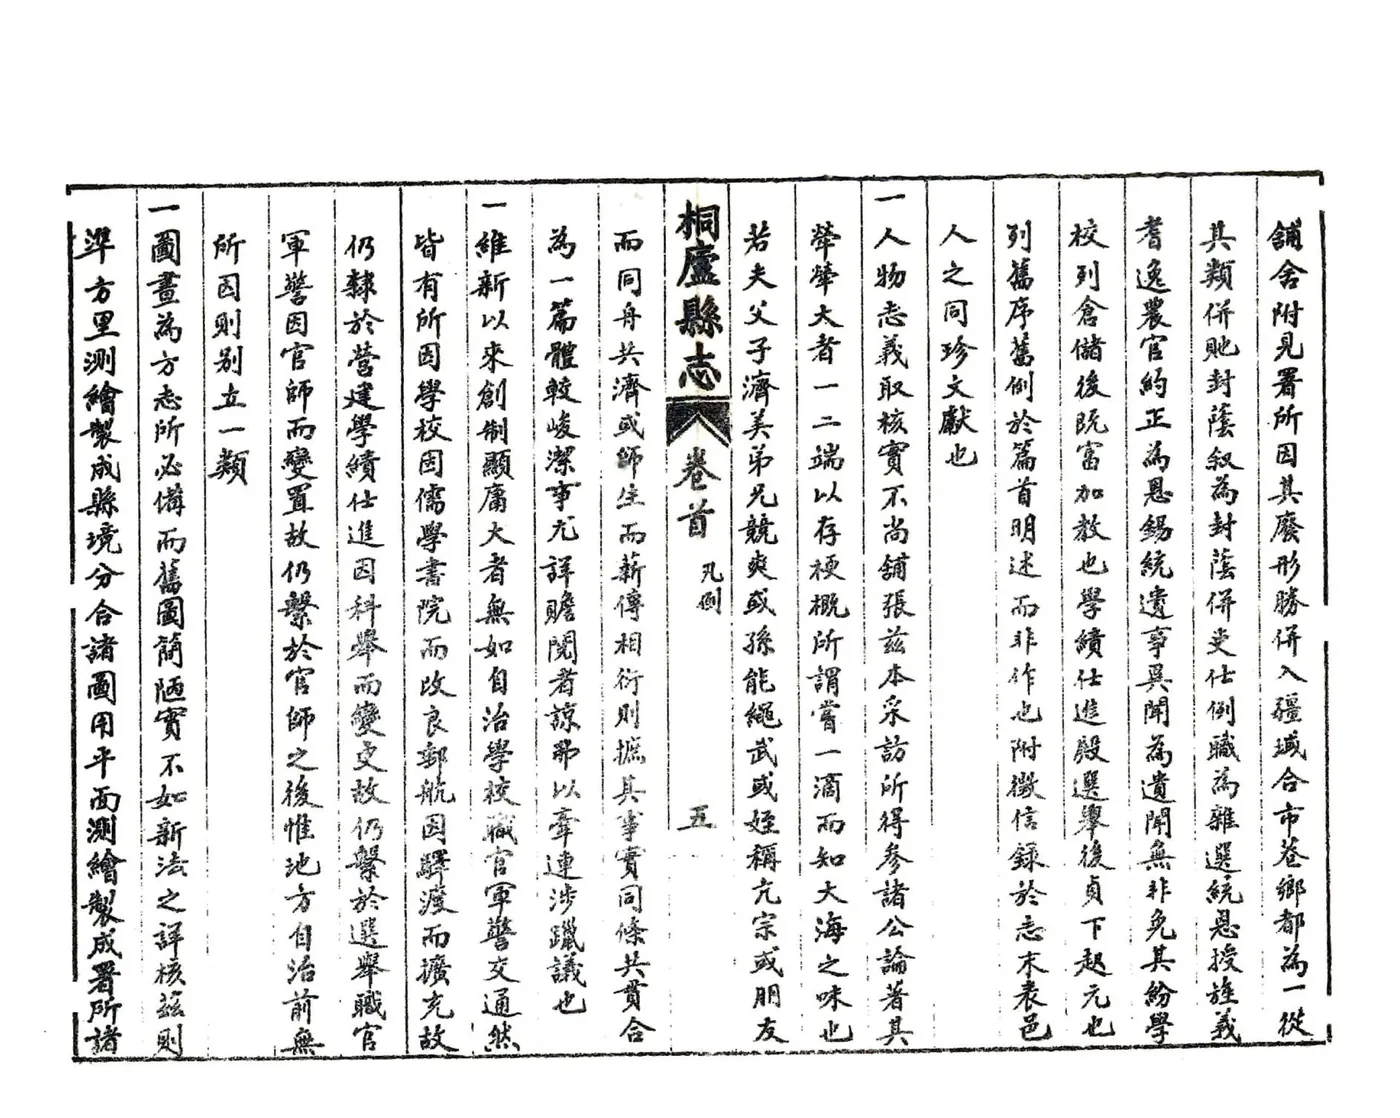 舖舍附見署所因其廢形勝併入疆域合市巷鄉都為一從
其類併貤封蔭叙為封蔭併吏仕例職為雜選統恩授旌義
耆逸農官約正為恩錫統遺事異聞為遺聞無非免其紛學
校列倉儲後既富加教也學績仕進殿選舉後貞下起元也
列舊序舊例於篇首明述而非作也附徵信錄於志末表邑
人之同珍文獻也
一人物志義取核實不尚舖張茲本采訪所得參諸公論著其
犖犖大者一二端以存梗概所謂嘗一滴而知大海之味也
若夫父子濟美弟兄競爽或孫能繩武或姪稱亢宗或朋友
桐廬縣志 卷首 凡例 五
而同舟共濟或師生而薪傳相衍則摭其事實同條共貫合
為一篇體較峻潔事尤詳贍閱者諒弗以牽連涉躐議也
一維新以來創制顯庸大者無如自治學校職官軍警交通然
皆有所因學校因儒學書院而改良郵航因驛渡而擴充故
仍隸於營建學績仕進因科舉而變更故仍繫於選舉職官
軍警因官師而變置故仍繫於官師之後惟地方自治前無
所因則別立一類
一圖畫為方志所必備而舊圖簡陋實不如新法之詳核茲則
準方里測繪製成縣境分合諸圖用平面測繪製成署所諸